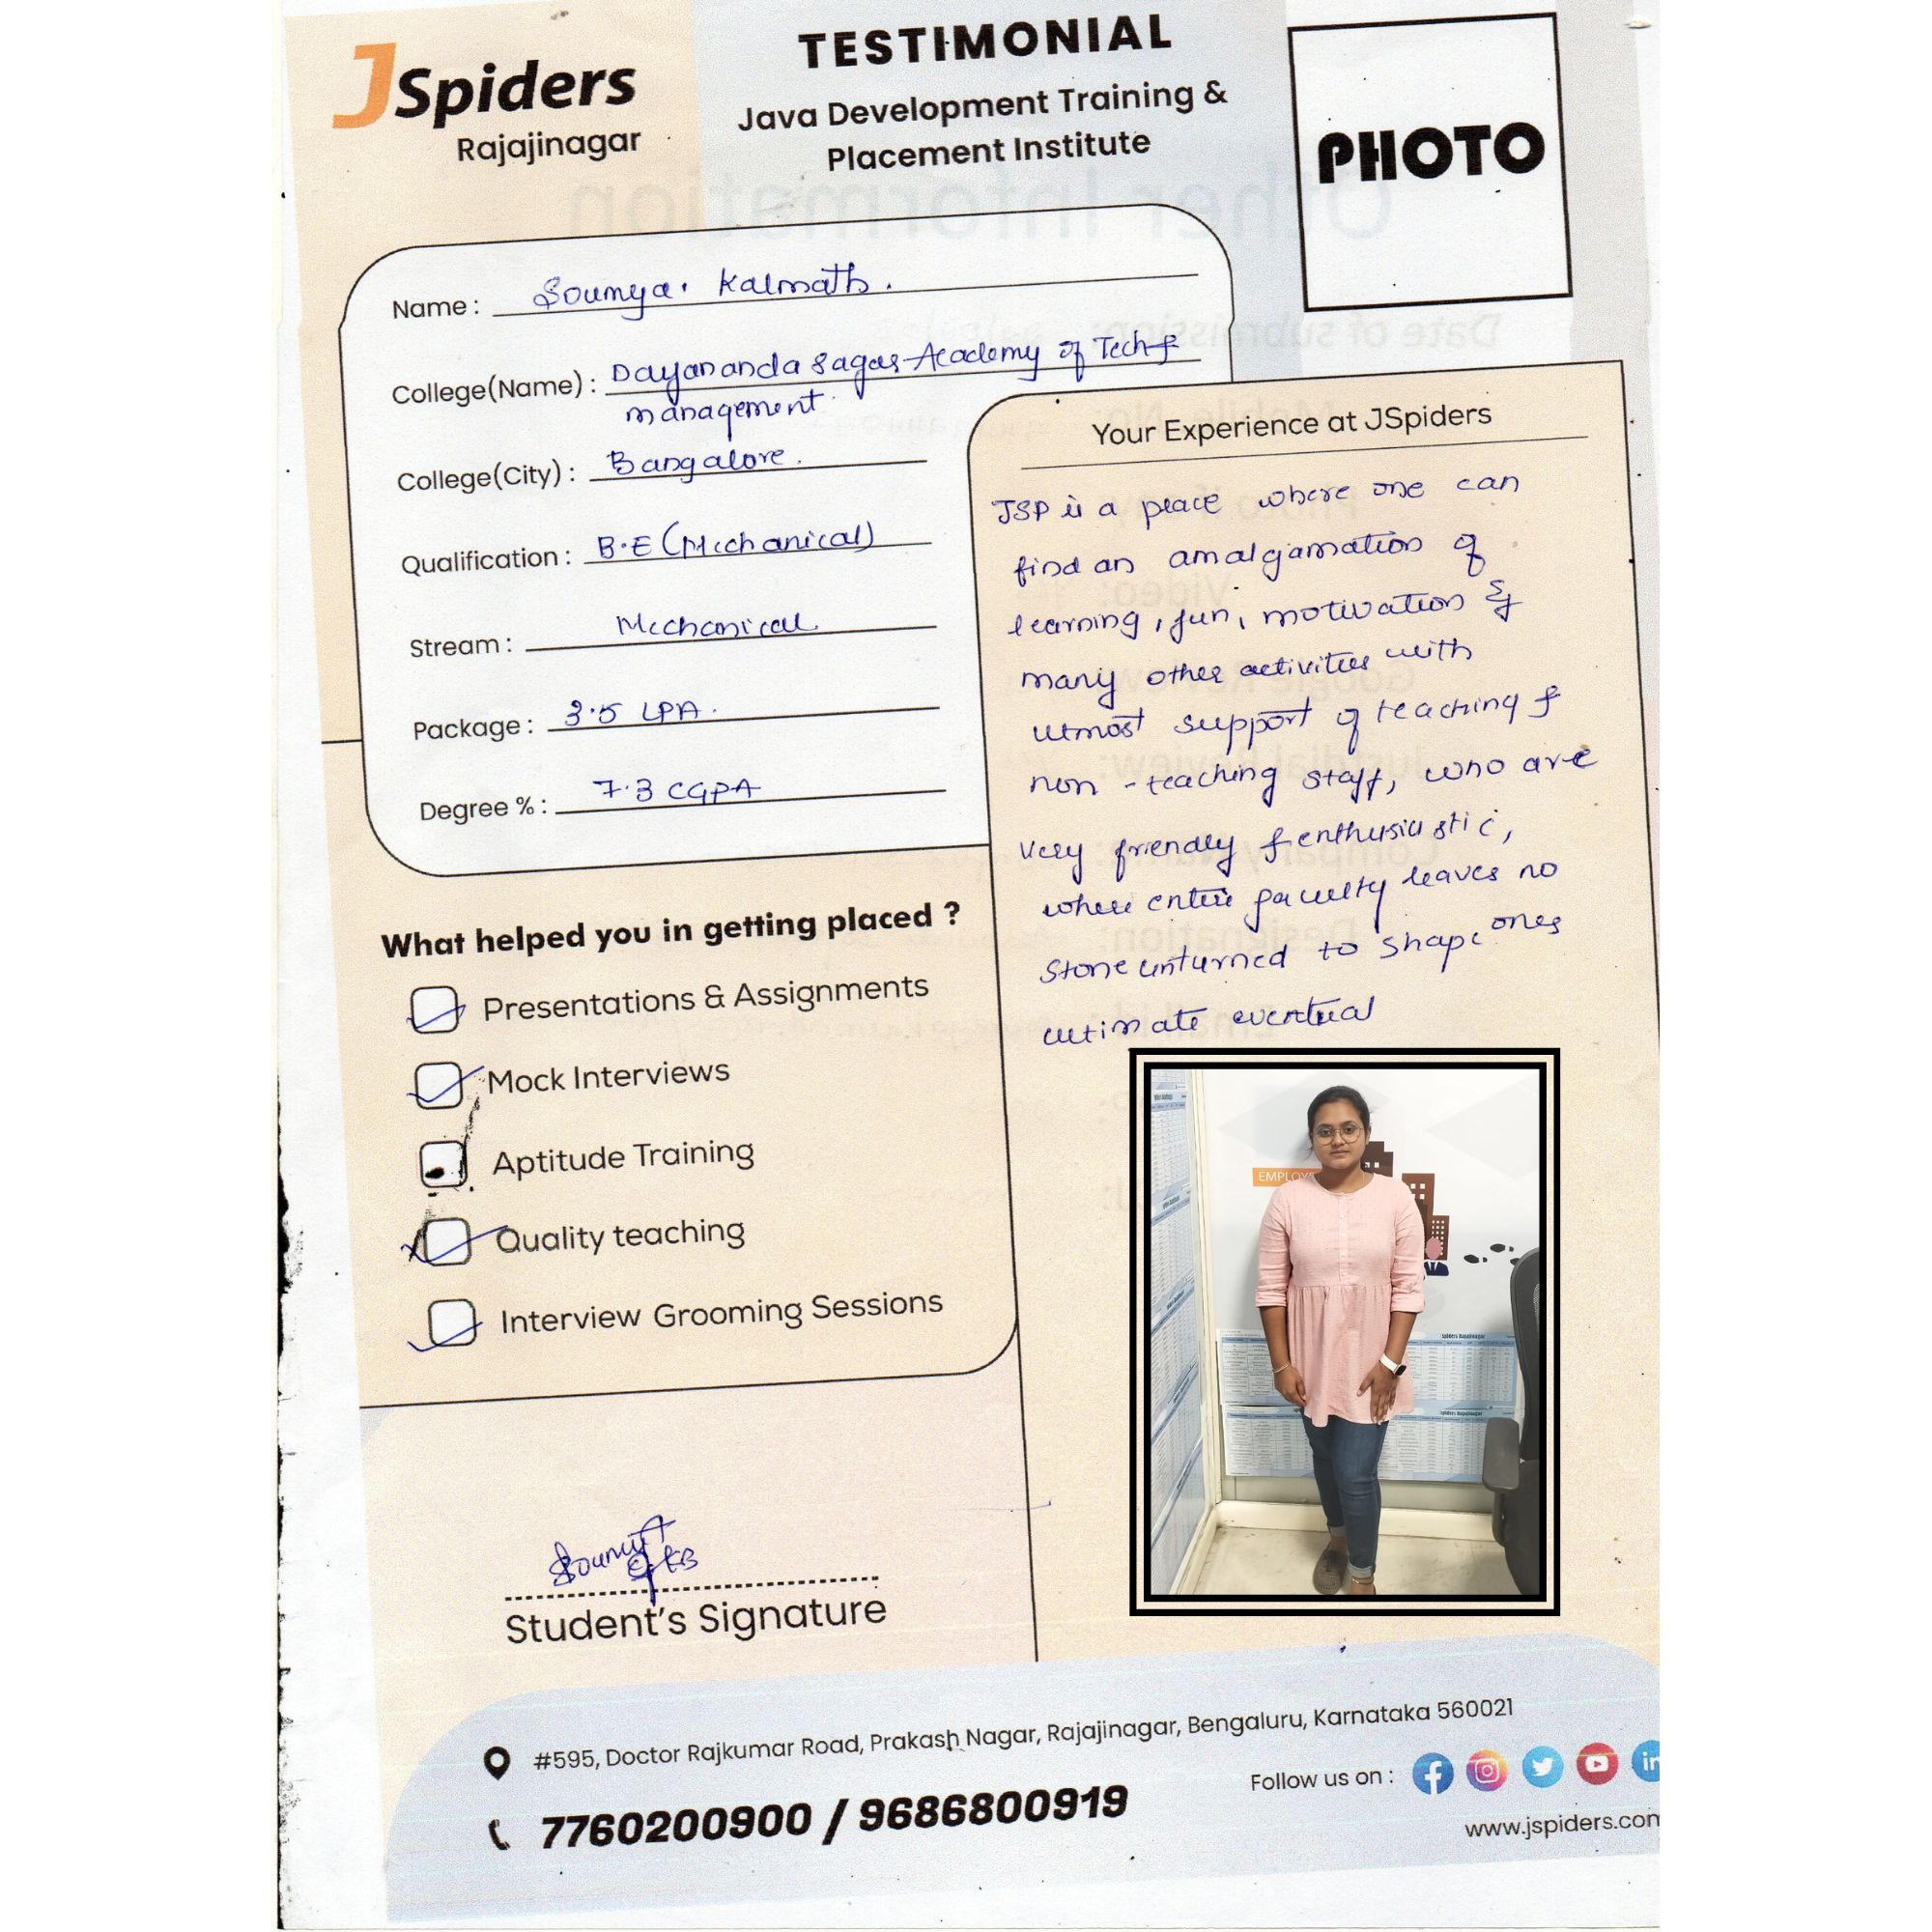 JSpiders
Rajajinagar
TESTIMONIAL
Java Development Training &
Placement Institute
PHOTO
Name : Soumya. Kalmath.
College(Name) : Dayananda Sagar Academy of Tech &
management.
College(City) : Bangalore.
Qualification : B.E (Mechanical)
Stream : Mechanical
Package : 3.5 LPA.
Degree % : 7.3 CGPA
What helped you in getting placed ?
Presentations & Assignments
Mock Interviews
Aptitude Training
Quality teaching
Interview Grooming Sessions
Your Experience at JSpiders
JSP is a place where one can
find an amalgamation of
learning, fun, motivation &
many other activities with
utmost support of teaching &
non - teaching staff, who are
very friendly & enthusiastic,
where entire faculty leaves no
stone unturned to shape ones
ultimate eventual
EMPLOY
Spiders Rajajinagar
Spiders Rajajinagar
Student's Signature
#595, Doctor Rajkumar Road, Prakash Nagar, Rajajinagar, Bengaluru, Karnataka 560021
7760200900 / 9686800919
Follow us on :
www.jspiders.com